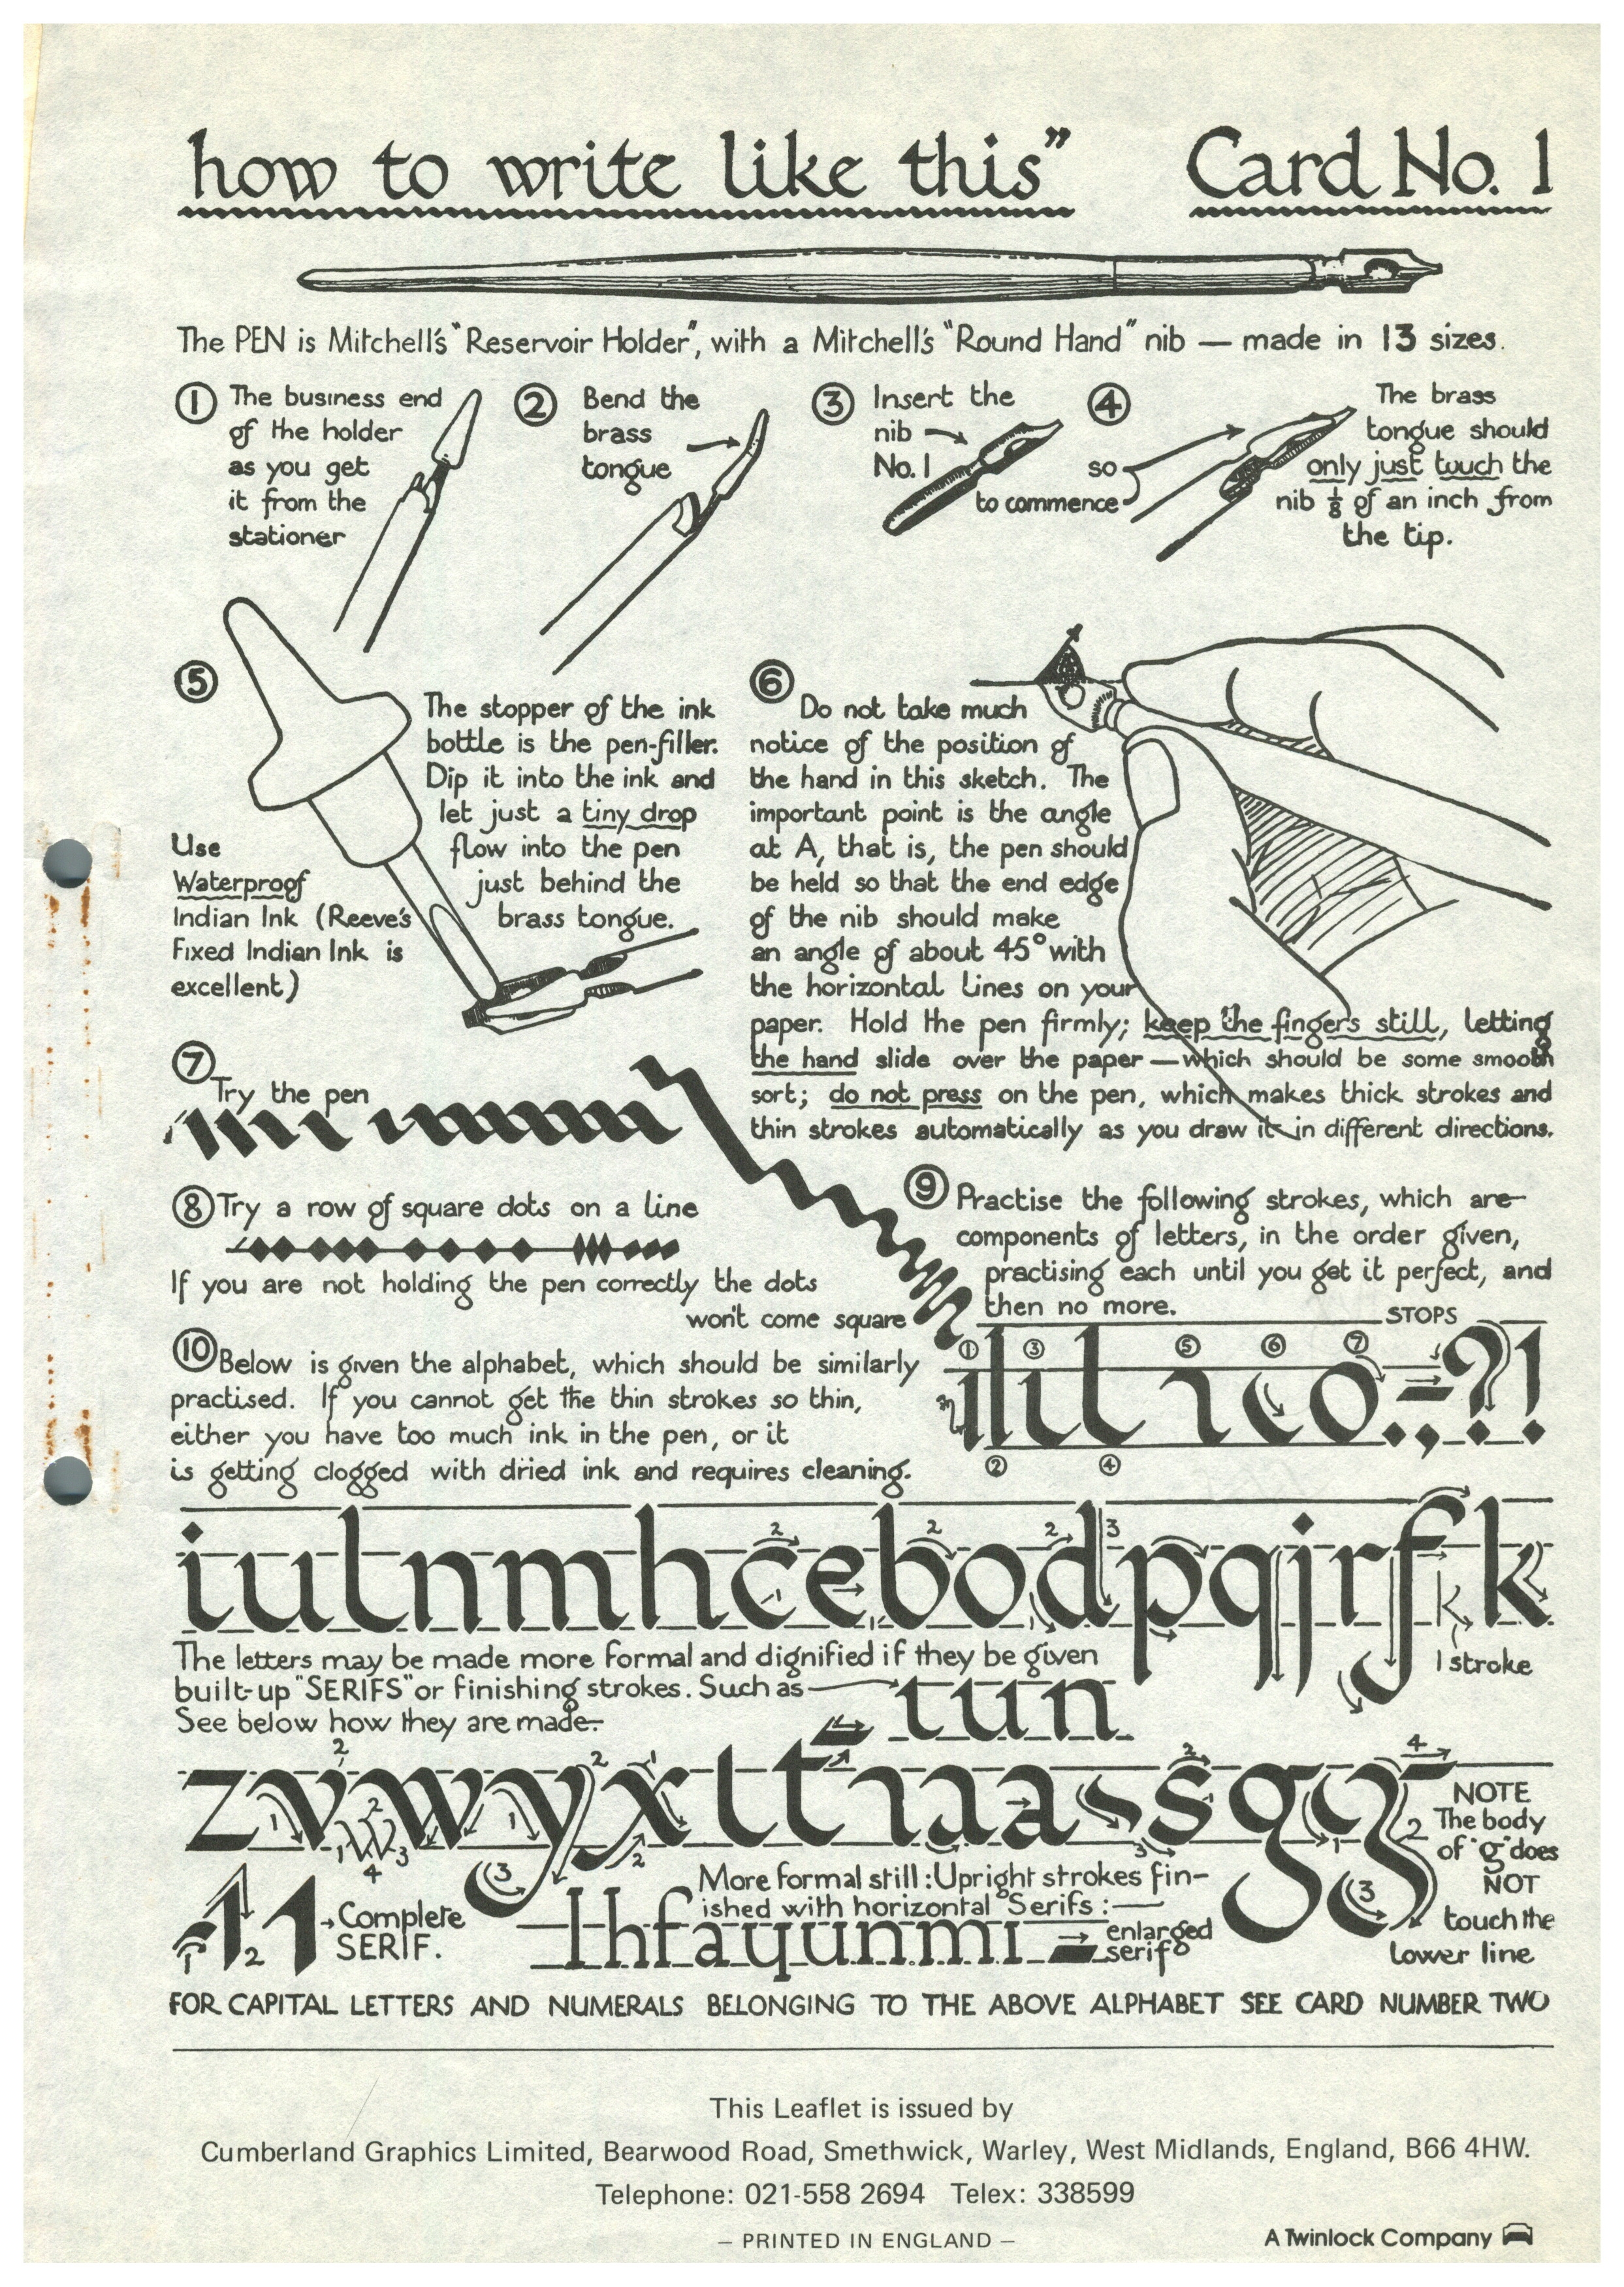 how to write like this” Card No. 1
The PEN is Mitchell's "Reservoir Holder", with a Mitchell's "Round Hand" nib — made in 13 sizes.
① The business end
of the holder
as you get
it from the
stationer
② Bend the
brass
tongue
③ Insert the
nib
No. 1
④ so
to commence
The brass
tongue should
only just touch the
nib ⅛ of an inch from
the tip.
⑤ The stopper of the ink
bottle is the pen-filler.
Dip it into the ink and
let just a tiny drop
flow into the pen
just behind the
brass tongue.
Use
Waterproof
Indian Ink (Reeve's
Fixed Indian Ink is
excellent)
⑥ Do not take much
notice of the position of
the hand in this sketch. The
important point is the angle
at A, that is, the pen should
be held so that the end edge
of the nib should make
an angle of about 45° with
the horizontal lines on your
paper. Hold the pen firmly; keep the fingers still, letting
the hand slide over the paper — which should be some smooth
sort; do not press on the pen, which makes thick strokes and
thin strokes automatically as you draw it in different directions.
⑦ Try the pen
⑧ Try a row of square dots on a line
If you are not holding the pen correctly the dots
won't come square
⑨ Practise the following strokes, which are
components of letters, in the order given,
practising each until you get it perfect, and
then no more.
STOPS
① ③ ⑤ ⑥ ⑦
. , = ? !
② ④
⑩ Below is given the alphabet, which should be similarly
practised. If you cannot get the thin strokes so thin,
either you have too much ink in the pen, or it
is getting clogged with dried ink and requires cleaning.
iulnmhcebodpqjrfk
1 stroke
The letters may be made more formal and dignified if they be given
built-up "SERIFS" or finishing strokes. Such as
tun
See below how they are made:-
zvwyxttıaassgg
NOTE
The body
of "g" does
NOT
touch the
lower line
Complete
SERIF.
More formal still: Upright strokes fin-
ished with horizontal Serifs:—
lhfayunmı
enlarged
serif
FOR CAPITAL LETTERS AND NUMERALS BELONGING TO THE ABOVE ALPHABET SEE CARD NUMBER TWO
This Leaflet is issued by
Cumberland Graphics Limited, Bearwood Road, Smethwick, Warley, West Midlands, England, B66 4HW.
Telephone: 021-558 2694 Telex: 338599
– PRINTED IN ENGLAND –
A Twinlock Company